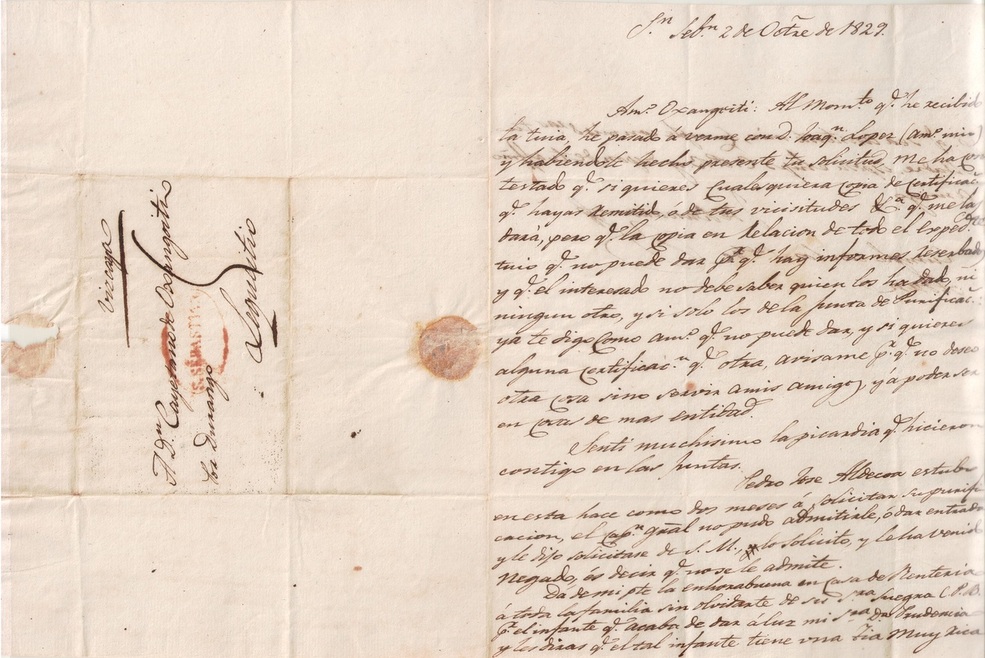 Vizcaya
A Dn Cayetano de Oxangoiti
S. SEBASTIAN
Por Durango
Lequeitio
Sn Sebn 2 de Octre de 1829.
Amo Oxangoiti: Al Momto qe he recibido
la tuia, he pasado á verme con D. Joaqn Lopez (amo mio)
y habiendole hecho presente tu solicitud, me ha con
testado qe si quieres cualesquiera copia de certificacn
qe hayas remitido, ó de tus vicisitudes &a qe me las
dará, pero qe la copia en relacion de todo el Exped.te
tuio qe no puede dar pr qe hay informes reserbados
y qe el interesado no debe saber quien los ha dado, ni
ningun otro, y si solo los de la Junta de Purificacn:
ya te digo como amo qe no puede dar, y si quieres
alguna certificacn qe otra, avisame pr qe no deseo
otra cosa sino servir a mis amigos, y á poder ser
en cosas de mas entidad.
Senti muchisimo la picardia qe hicieron
contigo en las Juntas.
Pedro Jose Aldecoa estubo
en esta hace como dos meses á solicitar su purifi
cacion, el Capn gral no pudo admitirle, ó dar entrada
y le dijo solicitase de S. M., lo solicitó, y le ha venido
Negado, és decir qe no se le admite.
Da de mi pte la enhorabuena en Casa de Renteria
á toda la familia sin olvidarte de su Sra Suegra (P. B.
pr el infante qe acaba de dar á luz mi Sra Da Prudencia
y les diras qe el tal infante tiene una tia muy rica